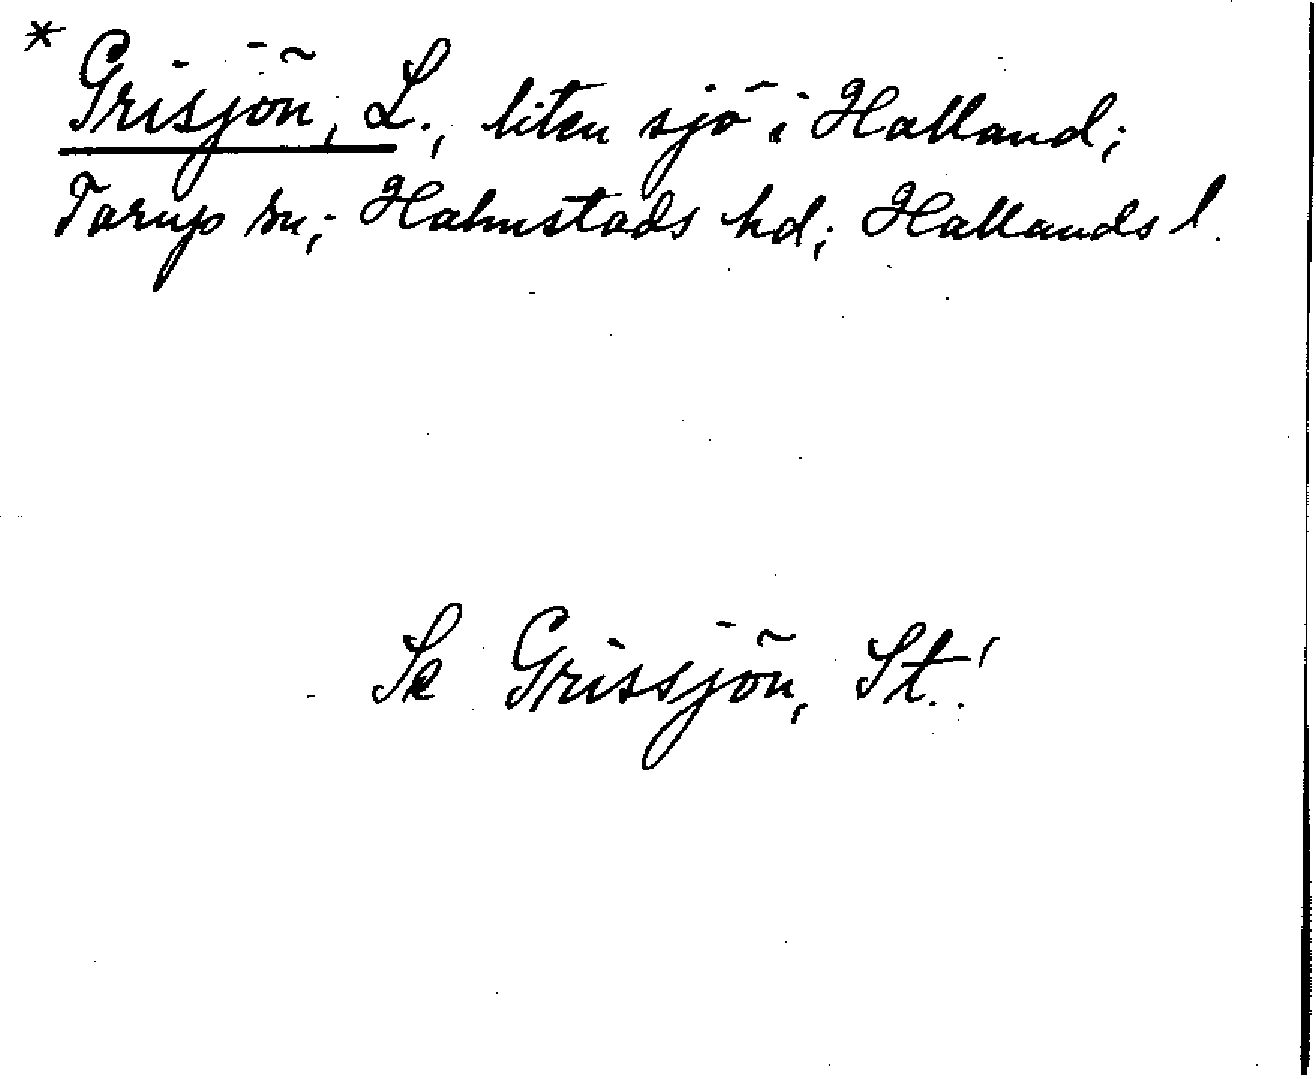 * Grisjön, L., liten sjö i Halland;
Torup sn; Halmstads hd; Hallands l.
Se Grissjön, St.!